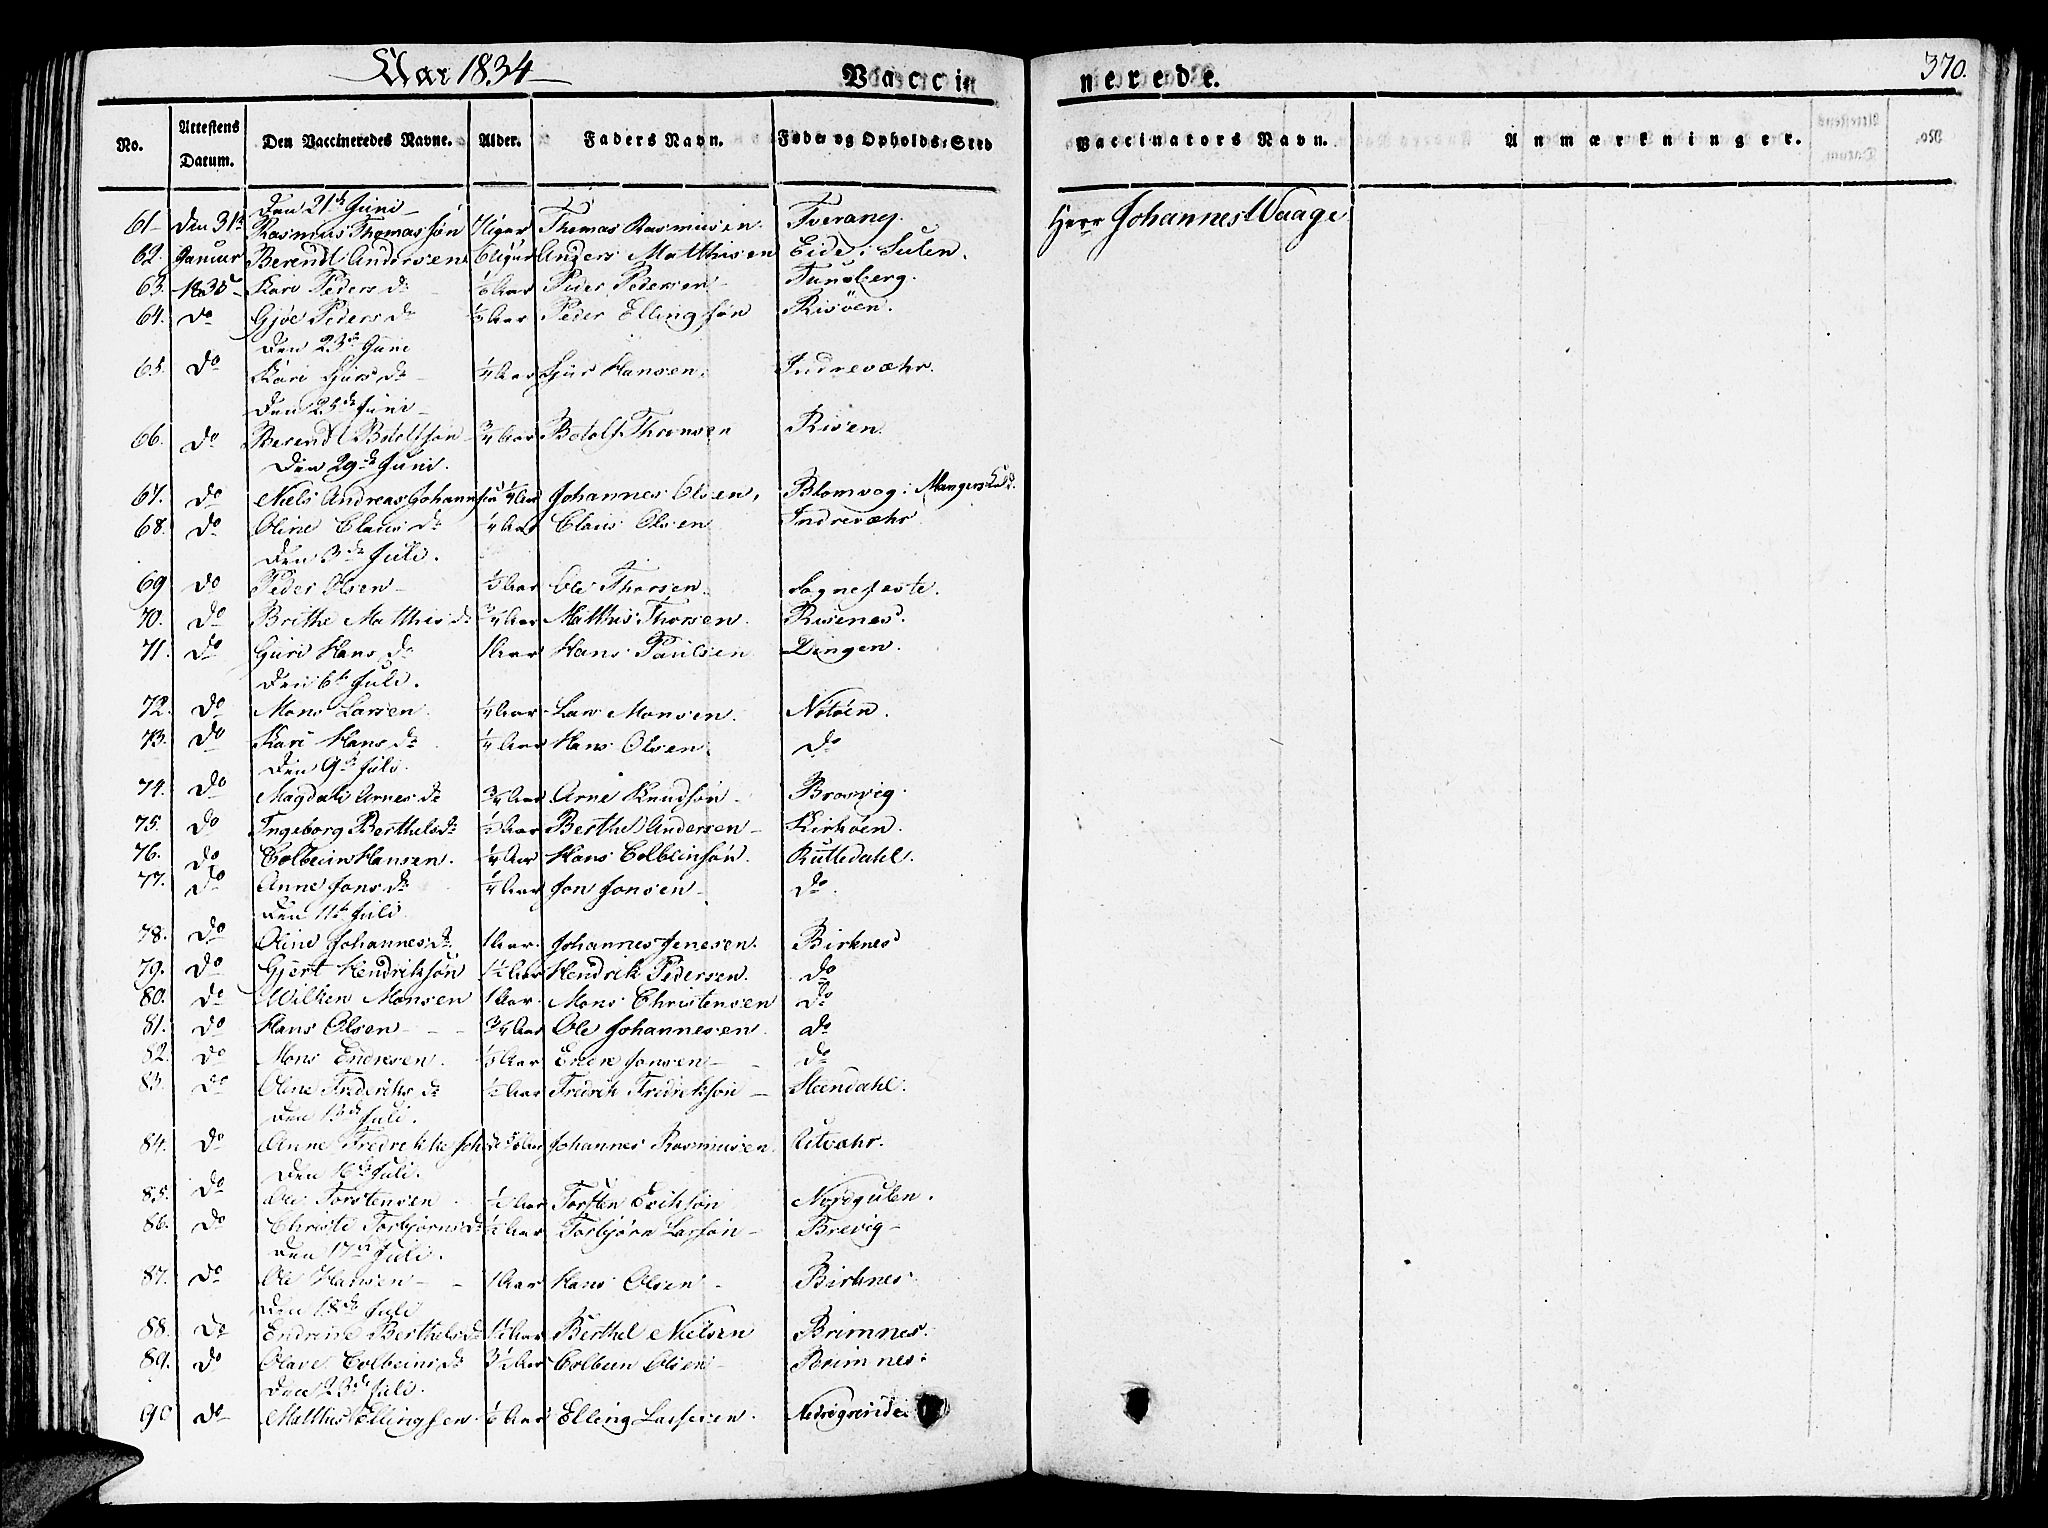 Aar 1834
Vaccinerede.
370.
No. Attestens Datum. Den Vaccineredes Navne. Alder. Faders Navn. Føde- og Opholds-Sted Vaccinators Navn. Anmærkninger.
Den 21de Juni
61 Den 31te Rasmus Thomassøn Thomas Rasmusen Tverang. Herr Johannes Waage
62. Januar Berendt Andersen Anders Matthisen Eide i Sulen.
63. 1835 Kari Peders dr Aar Peder Pedersen Tunsberg.
64. do Gjøe Peders dr Aar Peder Ellingsøn Risøen.
Den 23de Juni
65. do Kari Sjurs dr 1/4 Aar Sjur Hansen. Indrevæhr.
Den 25de Juni
66. do Berendt Botolfsøn 3/4 Aar Botolf Thorsen Risen.
Den 29de Juni.
67. do Niels Andreas Johannsen 1/4 Aar Johannes Olsen, Blomvog i Mangers
68. do Oline Claus dr 1/4 Aar Claus Olsen Indrevæhr
Den 3de Juli.
69 do Peder Olsen 1/2 Aar Ole Thorsen. Sognefeste.
70. do Brithe Matthis dr 3/4 Aar Matthis Thorsen. Risenes.
71. do Guri Hans dr 1 Aar Hans Paulsen Dingen.
Den 6te Juli.
72. do Mons Larsen. 1/4 Aar Lars Monsen. Notøen.
73. do Kari Hans dr 1/4 Aar Hans Olsen. do
Den 9de Juli.
74. do Magdali Arnes dr 3/4 Aar Arne Knudsøn Brosvig.
75. do Ingeborg Berthels dr 1/2 Aar Berthel Andersen Kirkøen.
76. do Colbein Hansen. 1/4 Aar Hans Colbeinsøn. Rutledahl.
77. do Anne Jons dr 1/4 Aar Jon Jonsen do.
Den 11te Juli.
78. do Oline Johannes dr 1 Aar. Johannes Jensen. Birknes
79. do Gjert Hendriksøn 1 1/2 Aar Hendrik Pedersen. do
80. do Wilken Monsen 1 Aar. Mons Christensen do
81. do Hans Olsen 3/4 Aar Ole Johannesen do
82. do Mons Endresen. Aar Endre Jonsen do
83. do Oline Frederiks dr 1/2 Aar Fredrik Fredriksøn Steendahl.
Juli.
84. do Anne Fredrikke Joh. dr Aar Johannes Rasmusen. Utvæhr.
Den 16de Juli.
85. do Ole Torstensen 1/2 Aar Torsten Eriksøn Nordgulen.
86. do Christi Torbjørns dr 1/2 Aar Torbjørn Larsøn Brevig
Den 17de Juli.
87. do Ole Hansen 1 Aar Hans Olsen Birknes
Den 18de Juli
88. do Endrine Berthels dr 1 1/2 Aar Berthel Nielsen Brimnes.
89. do Olave Colbeins dr 3 1/2 Aar Colbein Olsen Brimnes.
Den 23de Juli.
90 do Matthis Ellingsen. Aar Elling Lassesen.